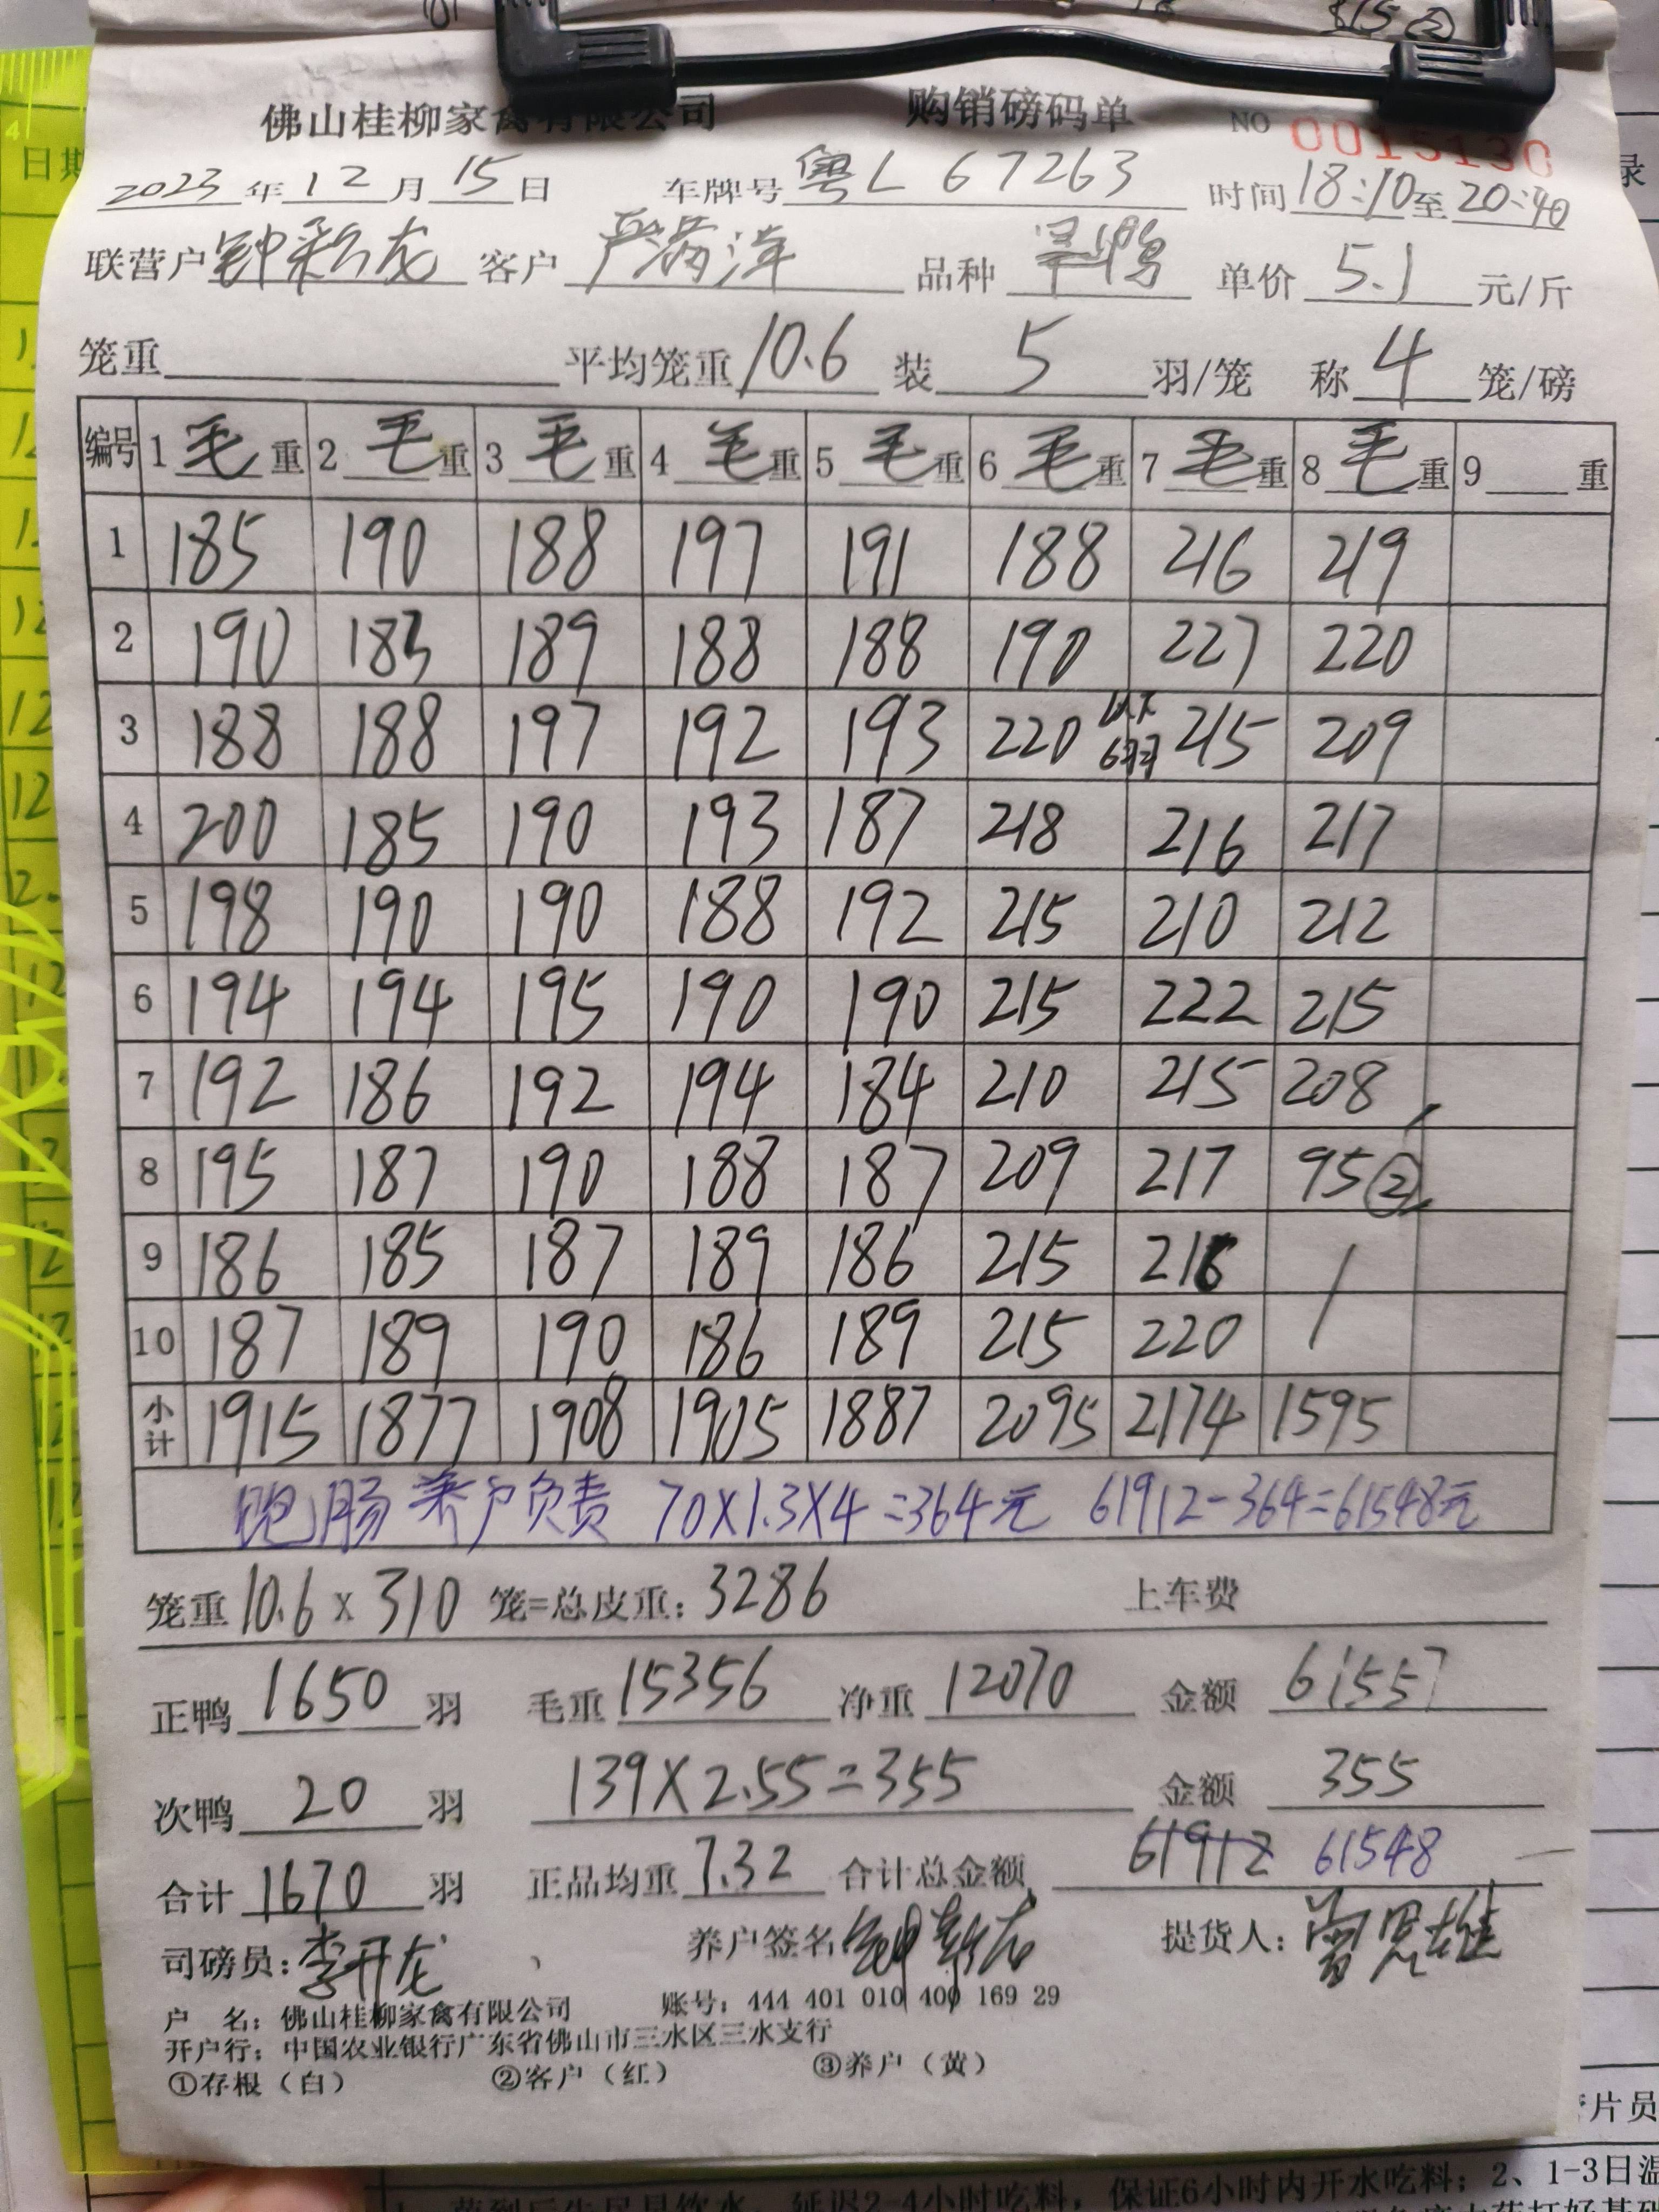 佛山桂柳家禽有限公司 购销磅码单 NO 0015130
2023年12月15日 车牌号 粤L 67263 时间 18:10 至 20:40
联营户 钟新龙 客户 严满洋 品种 旱鸭 单价 5.1 元/斤
笼重 平均笼重 10.6 装 5 羽/笼 称 4 笼/磅
编号 1 毛 重 2 毛 重 3 毛 重 4 毛 重 5 毛 重 6 毛 重 7 毛 重 8 毛 重 9 重
1 185 190 188 197 191 188 216 219
2 190 183 189 188 188 190 227 220
3 188 188 197 192 193 220 以下6羽 215 209
4 200 185 190 193 187 218 216 217
5 198 190 190 188 192 215 210 212
6 194 194 195 190 190 215 222 215
7 192 186 192 194 184 210 215 208
8 195 187 190 188 187 209 217 95②
9 186 185 187 189 186 215 216 /
10 187 189 190 186 189 215 220
小计 1915 1877 1908 1905 1887 2095 2174 1595
跑肠养户负责 70X1.3X4=364元 61912-364=61548元
笼重 10.6 x 310 笼=总皮重: 3286 上车费
正鸭 1650 羽 毛重 15356 净重 12070 金额 61557
次鸭 20 羽 139X2.55=355 金额 355
合计 1670 羽 正品均重 7.32 合计总金额 61912 61548
司磅员: 李开龙 养户签名 钟新龙 提货人:
户 名: 佛山桂柳家禽有限公司 账号: 444 401 010 400 169 29
开户行: 中国农业银行广东省佛山市三水区三水支行
①存根(白) ②客户(红) ③养户(黄)